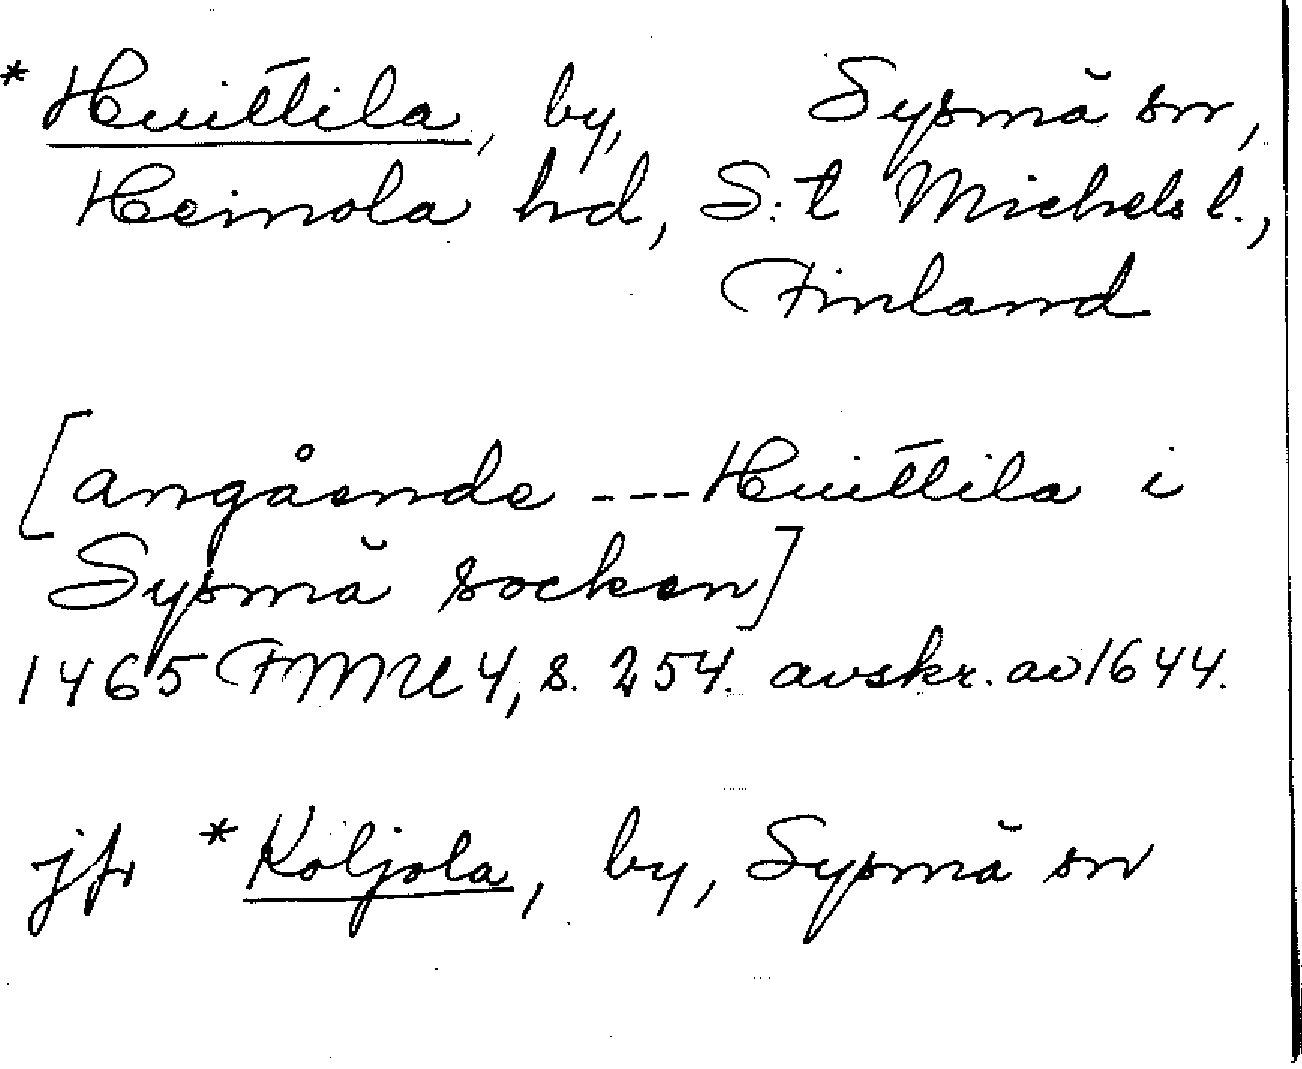 * Huittila, by, Sysmä sn,
Heinola hd, S:t Michels l.,
Finland
[angående --- Huittila i
Sysmä socken]
1465 FMU 4, s. 254. avskr. av 1644.
jfr *Koljola, by, Sysmä sn